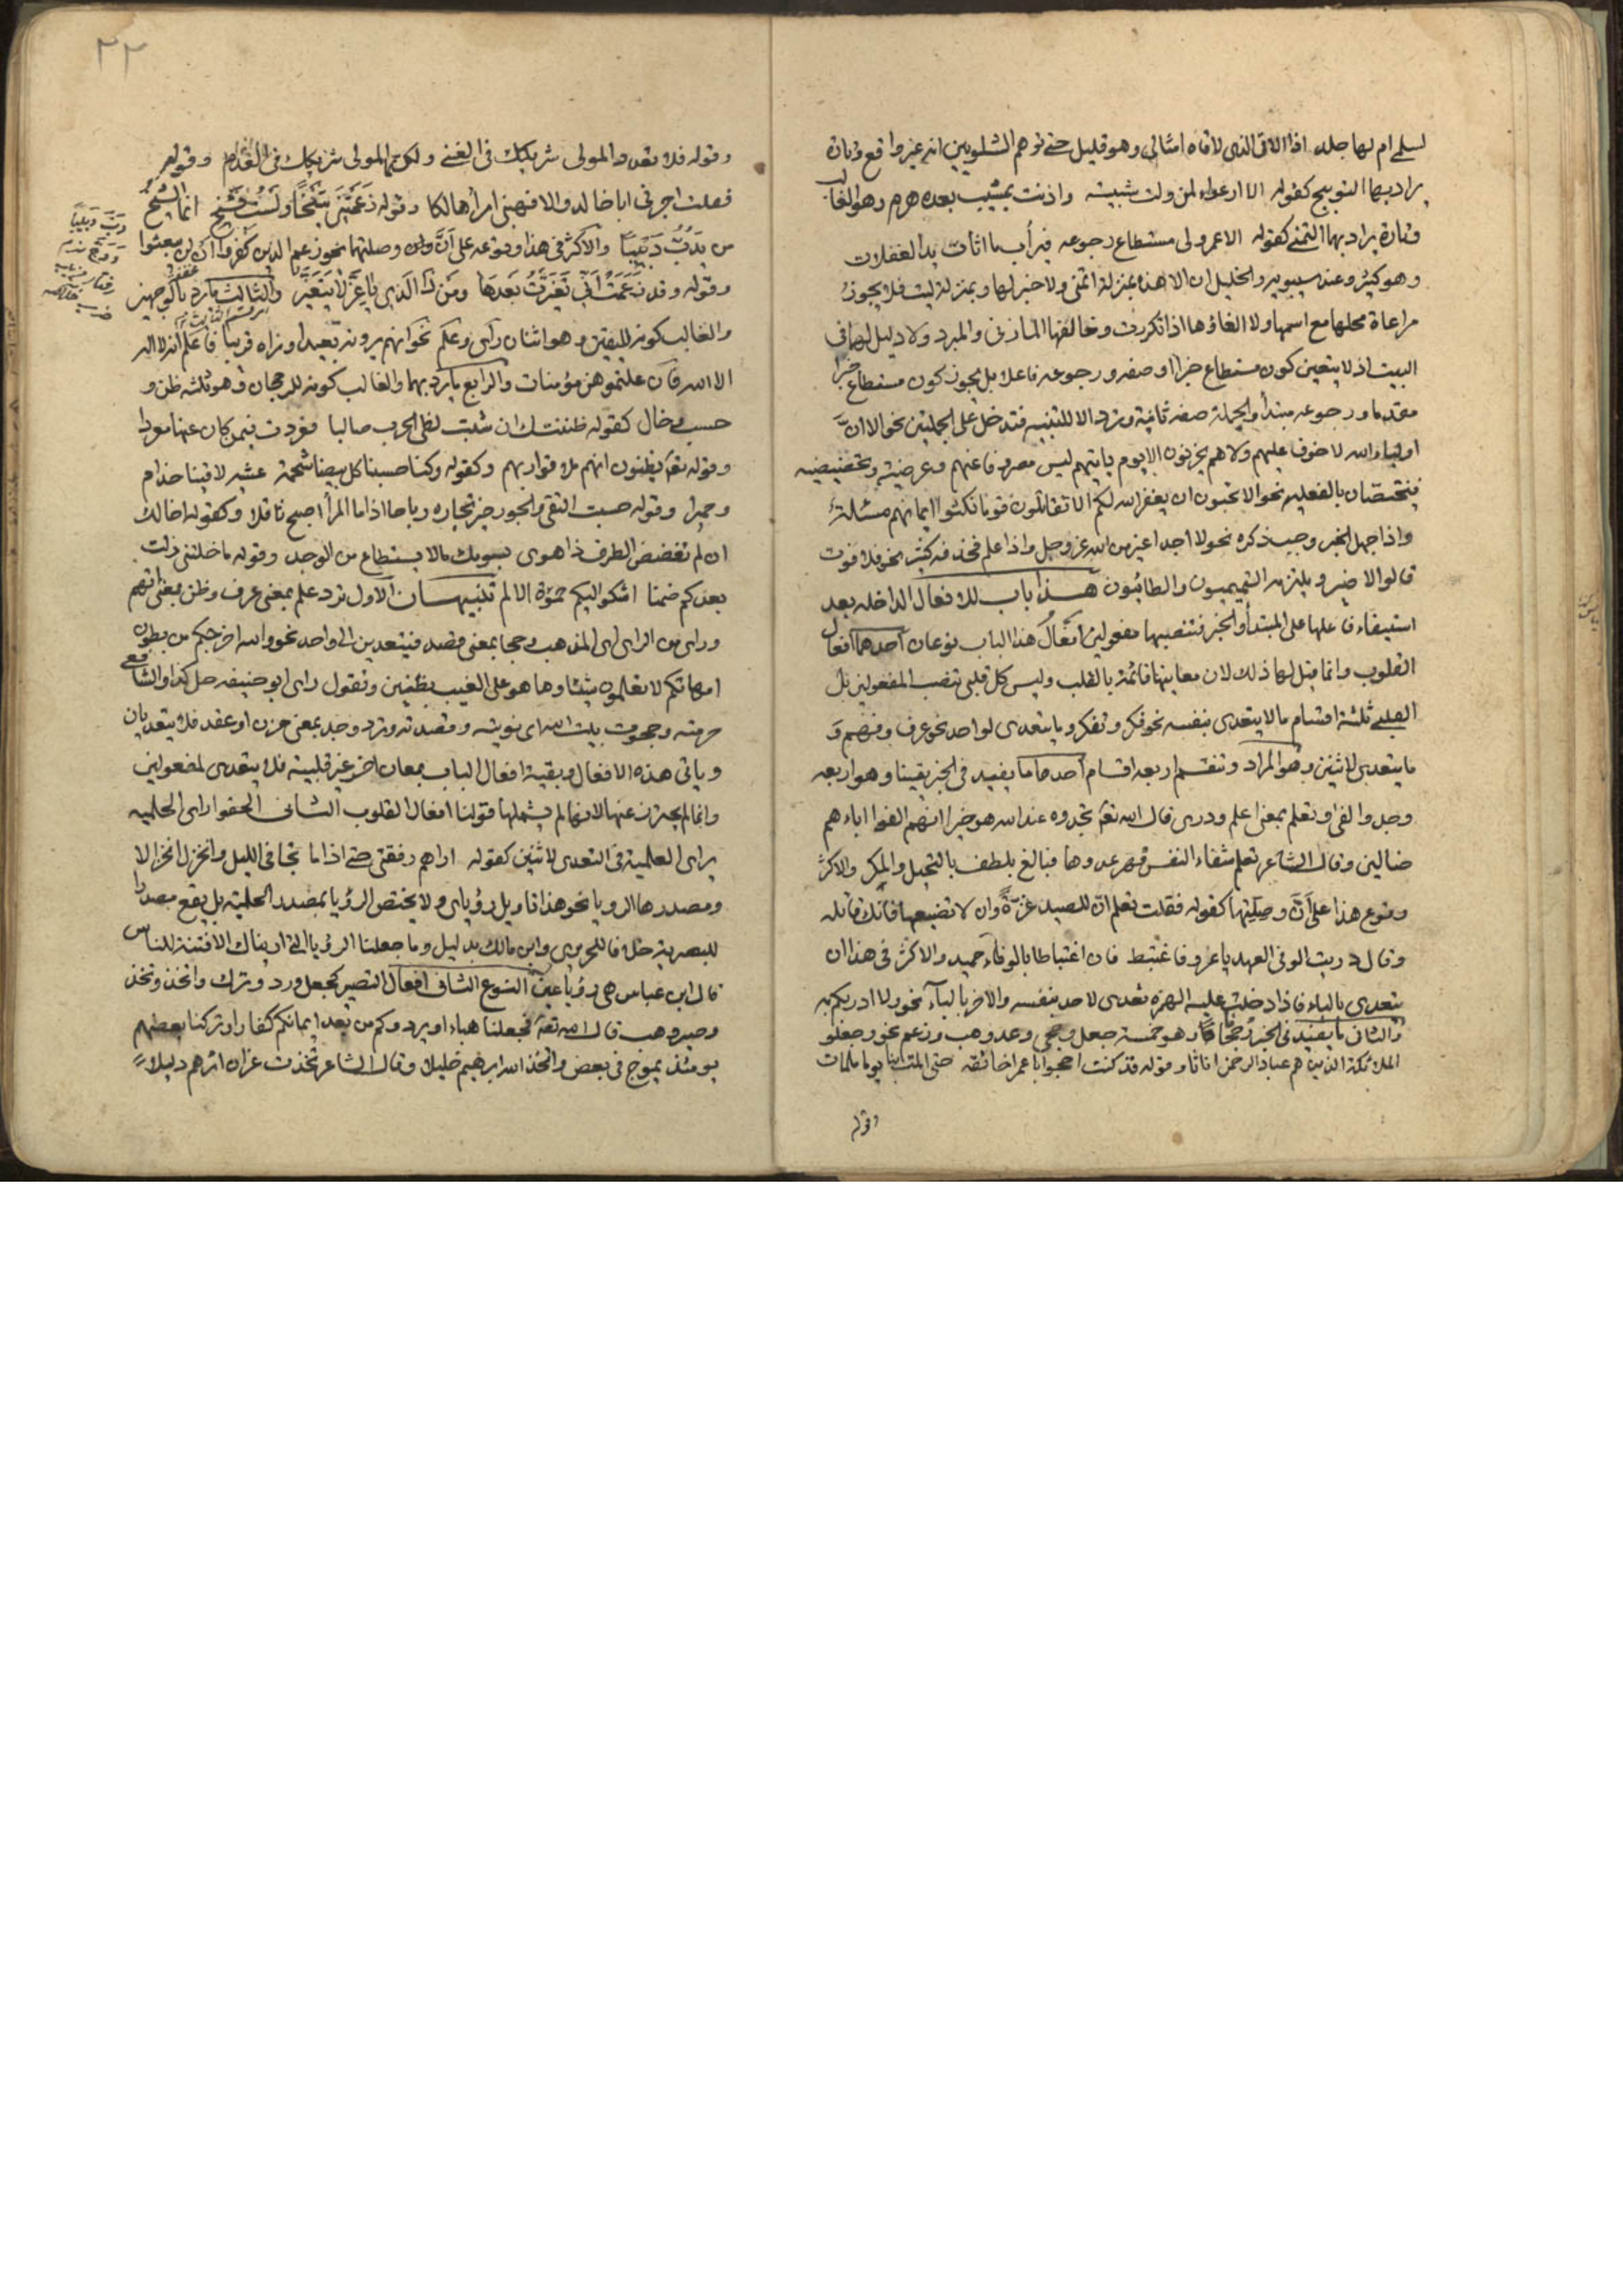 لسلمى ام لها جلد اذا الاقى الذى لاقاه امثالى وهو قليل حتى توهم الشلوبين انه غير واقع وتارة
يراد بهما التوبيخ كقوله الا ارعواء لمن ولت شبيبته واذنت بمشيب بعده هرم وهو الغالب
وتارة يراد بها التمنى كقوله الا عمر ولى مستطاع رجوعه فيرأب ما اثأت يد الغفلات
وهو كثير وعند سيبويه والخليل ان الا هذه بمنزلة اتمنى ولا خبر لها وبمنزلة ليت فلا يجوز
مراعاة محلها مع اسمها ولا الغاؤها اذا تكررت وخالفهما المازنى والمبرد ولا دليل لهما فى
البيت اذ لا يتعين كون مستطاع خبرا او صفه ورجوعه فاعلا بل يجوز كون مستطاع خبرا
مقدما ورجوعه مبتدأ والجملة صفه ثانية وترد الا للتنبيه فتدخل على الجملتين نحو الا ان
اولياء الله لا خوف عليهم ولا هم يحزنون الا يوم ياتيهم ليس مصروفا عنهم وعرضية وتحضيضيه
فتختصان بالفعليه نحو الا تحبون ان يغفر الله لكم الا تقاتلون قوما نكثوا ايمانهم مسئلة
واذا جهل الخبر وجب ذكره نحو لا احد اغير من الله عز وجل واذا علم فحذفه كثير نحو فلا فوت
قالوا لا ضير ويلتزمه التميميون والطائيون هذا باب للافعال الداخله بعد
استيفاء فاعلها على المبتدأ والخبر فتنصبهما مفعولين افعال هذا الباب نوعان احدهما افعال
القلوب وانما قيل لها ذلك لان معانيها قائمة بالقلب وليس كل قلبى ينصب المفعولين بل
القلبى ثلثة اقسام ما لا يتعدى بنفسه نحو فكر وتفكر وما يتعدى لواحد نحو عرف وفهم و
ما يتعدى لاثنين وهو المراد وتنقسم اربعه اقسام احدها ما يفيد فى الخبر يقينا وهو اربعه
وجد والفى وتعلم بمعنى اعلم ودرى قال الله تعه تجدوه عند الله هو خيرا انهم الفوا اباءهم
ضالين وقال الشاعر تعلم شفاء النفس قهر عدوها فبالغ بلطف بالتحيل والمكر والاكثر
وقوع هذا على أنّ وصلتها كقوله فقلت تعلم ان للصيد غرة وان لا تضيعها فانك قاتله
وقال دريت الوفى العهد يا عرو فاغتبط فان اغتباطا بالوفاء حميد والاكثر فى هذا ان
يتعدى بالباء فاذا دخلت عليه الهمزة تعدى لاحد بنفسه والاخر بالباء نحو ولا ادريكم به
والثانى ما يفيد فى الخبر رجحانا وهو خمسة جعل وحجى وعد وهب وزعم نحو وجعلوا
الملائكة الذين هم عباد الرحمن اناثا وقوله قد كنت احجو ابا عمر اخا ثقه حتى المت بنا يوما ملمات
وقوله
٢٢
وقوله فلا تعدد المولى شريكك فى الغنى ولكنما المولى شريكك فى العدم وقوله
فقلت اجرنى ابا خالد والا فهبنى امرأ هالكا وقوله زعمتنى شيخا ولست بشيخ انما الشيخ
من يدب دبيبا والاكثر فى هذا وقوعه على أنّ وأن وصلتهما نحو زعم الذين كفروا ان لن يبعثوا
وقوله وقد زعمت أنى تغيرت بعدها ومن ذا الذى يا عز لا يتغير والثالث ما يرد بالوجهين
والغالب كونه لليقين وهو اثنان رأى وعلم نحو انهم يرونه بعيدا ونراه قريبا فاعلم انه لا اله
الا الله فان علمتموهن مؤمنات والرابع ما يرد بهما والغالب كونه للرجحان وهو ثلثه ظن و
حسب وخال كقوله ظننتك ان شبت لظى الحرب صاليا فعردت فيمن كان عنها معردا
وقوله تعه يظنون انهم ملاقوا ربهم وكقوله وكنا حسبنا كل بيضا شحمة عشيه لاقينا جذام
وحميرا وقوله حسبت التقى والجود خير تجاره رباحا اذا ما المرأ اصبح ثاقلا وكقوله اخالك
ان لم تغضض الطرف ذا هوى يسومك مالا يستطاع من الوجد وقوله ما خلتنى زلت
بعدكم ضمنا اشكو اليكم حموة الالم تنبيهان الاول ترد علم بمعنى عرف وظن بمعنى اتهم
وراى من الراى اى المذهب وحجا بمعنى قصد فيتعدين الى واحد نحو والله اخرجكم من بطون
امهاتكم لا تعلمون شيئا وما هو على الغيب بظنين وتقول راى ابو حنيفه حل كذا والشافعى
حرمته وحجوت بيت الله اى نويته وقصدته وترد وجد بمعنى حزن او حقد فلا يتعديان
وياتى هذه الافعال وبقية افعال الباب بمعان اخر غير قلبية فلا يتعدى لمفعولين
وانما لم يحترز عنها لانها لم يشملها قولنا افعال القلوب الثانى الحقوا راى الحلميه
براى العلمية فى التعدى لاثنين كقوله اراهم رفقتى حتى اذا ما تجافى الليل وانخزل انخزالا
ومصدرها الرويا نحو هذا تاويل رؤياى ولا يختص الرؤيا بمصدر الحلمية بل يقع مصدرا
للبصرية خلافا للحريرى وابن مالك بدليل وما جعلنا الرؤيا التى اريناك الا فتنة للناس
قال ابن عباس هى رؤيا عين النوع الثانى افعال التصيير كجعل ورد وترك واتخذ وتخذ
وصير وهب قال الله تعه فجعلناه هباء او يردونكم من بعد ايمانكم كفارا وتركنا بعضهم
يومئذ يموج فى بعض واتخذ الله ابرهيم خليلا وقال الشاعر تخذت غراز اثرهم دليلا